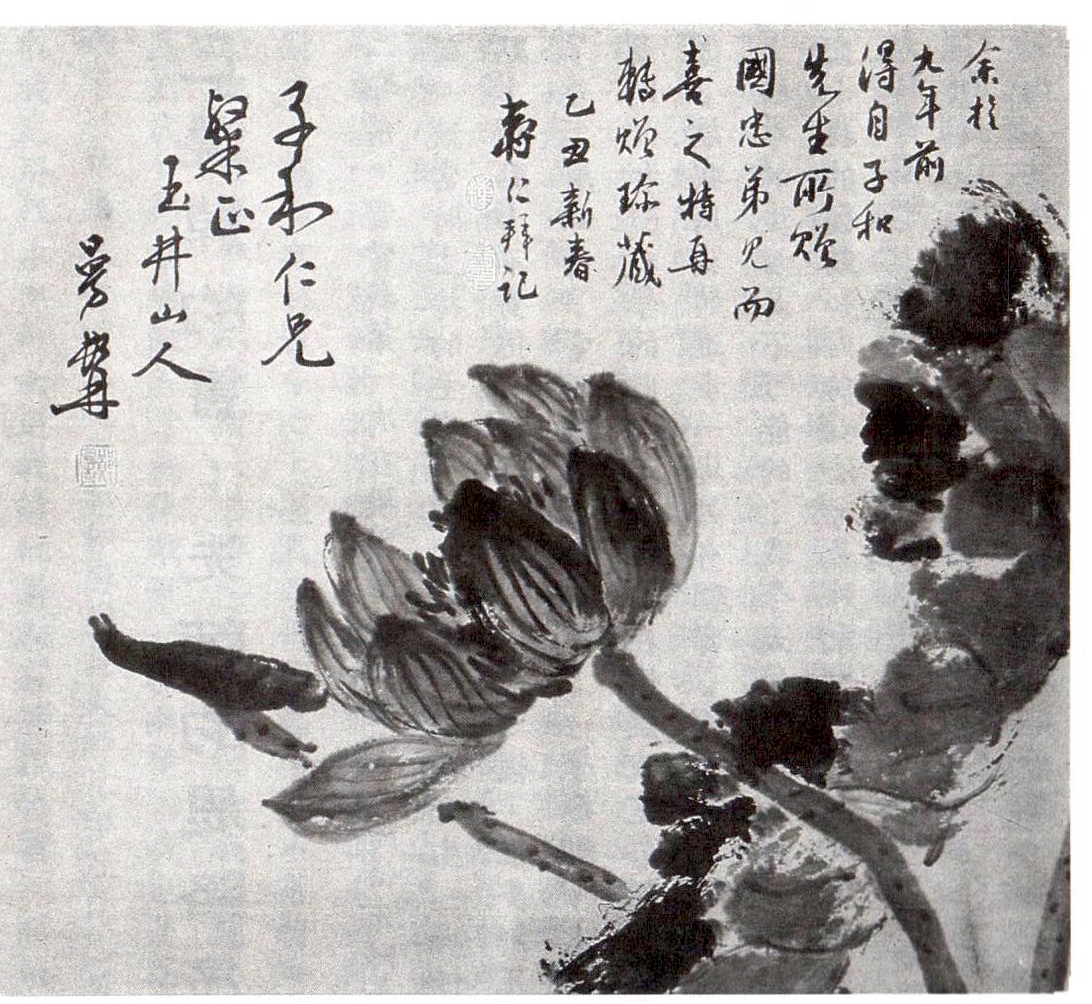 余於
九年前
得自子和
先生所贈
國忠弟見而
喜之特再
轉贈珍藏
乙丑新春
壽仁拜記
子和仁兄
粲正
玉井山人